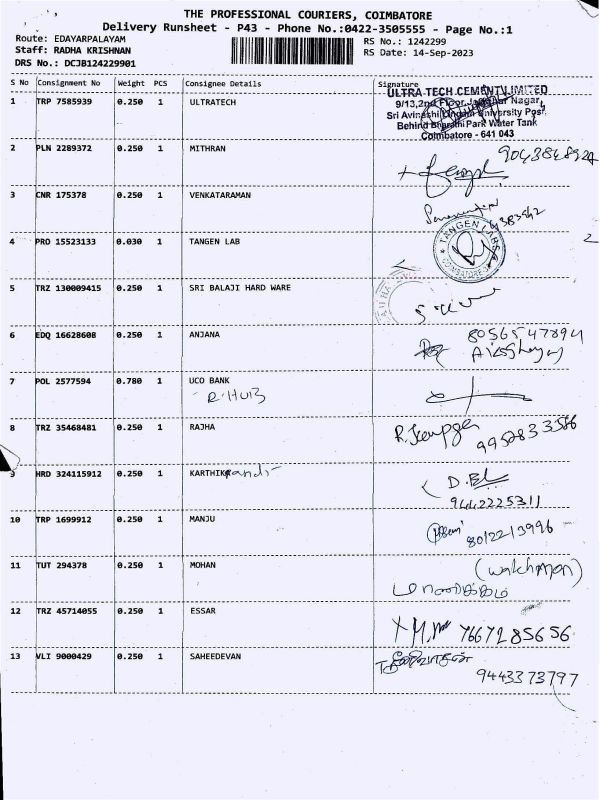 THE PROFESSIONAL COURIERS, COIMBATORE
Delivery Runsheet - P43 - Phone No.:0422-3505555 - Page No.:1
Route: EDAYARPALAYAM
Staff: RADHA KRISHNAN
DRS No.: DCJB124229901
RS No.: 1242299
RS Date: 14-Sep-2023
S No Consignment No Weight PCS Consignee Details Signature
1 TRP 7585939 0.250 1 ULTRATECH
ULTRA TECH CEMENT LIMITED
9/13,2nd Floor, Nagar,
Sri Avinashi Lingam University Post,
Behind Bharathi Park Water Tank
Coimbatore - 641 043
2 PLN 2289372 0.250 1 MITHRAN
3 CNR 175378 0.250 1 VENKATARAMAN
4 PRO 15523133 0.030 1 TANGEN LAB
TANGEN LABS
COIMBATORE
2
5 TRZ 130009415 0.250 1 SRI BALAJI HARD WARE
6 EDQ 16628608 0.250 1 ANJANA
8056547894
7 POL 2577594 0.780 1 UCO BANK
8 TRZ 35468481 0.250 1 RAJHA
9952833586
9 HRD 324115912 0.250 1 KARTHIK
9442225311
10 TRP 1699912 0.250 1 MANJU
8012213996
11 TUT 294378 0.250 1 MOHAN
(watchman)
மாணிக்கம்
12 TRZ 45714055 0.250 1 ESSAR
7667285656
13 VLI 9000429 0.250 1 SAHEEDEVAN
9443373797